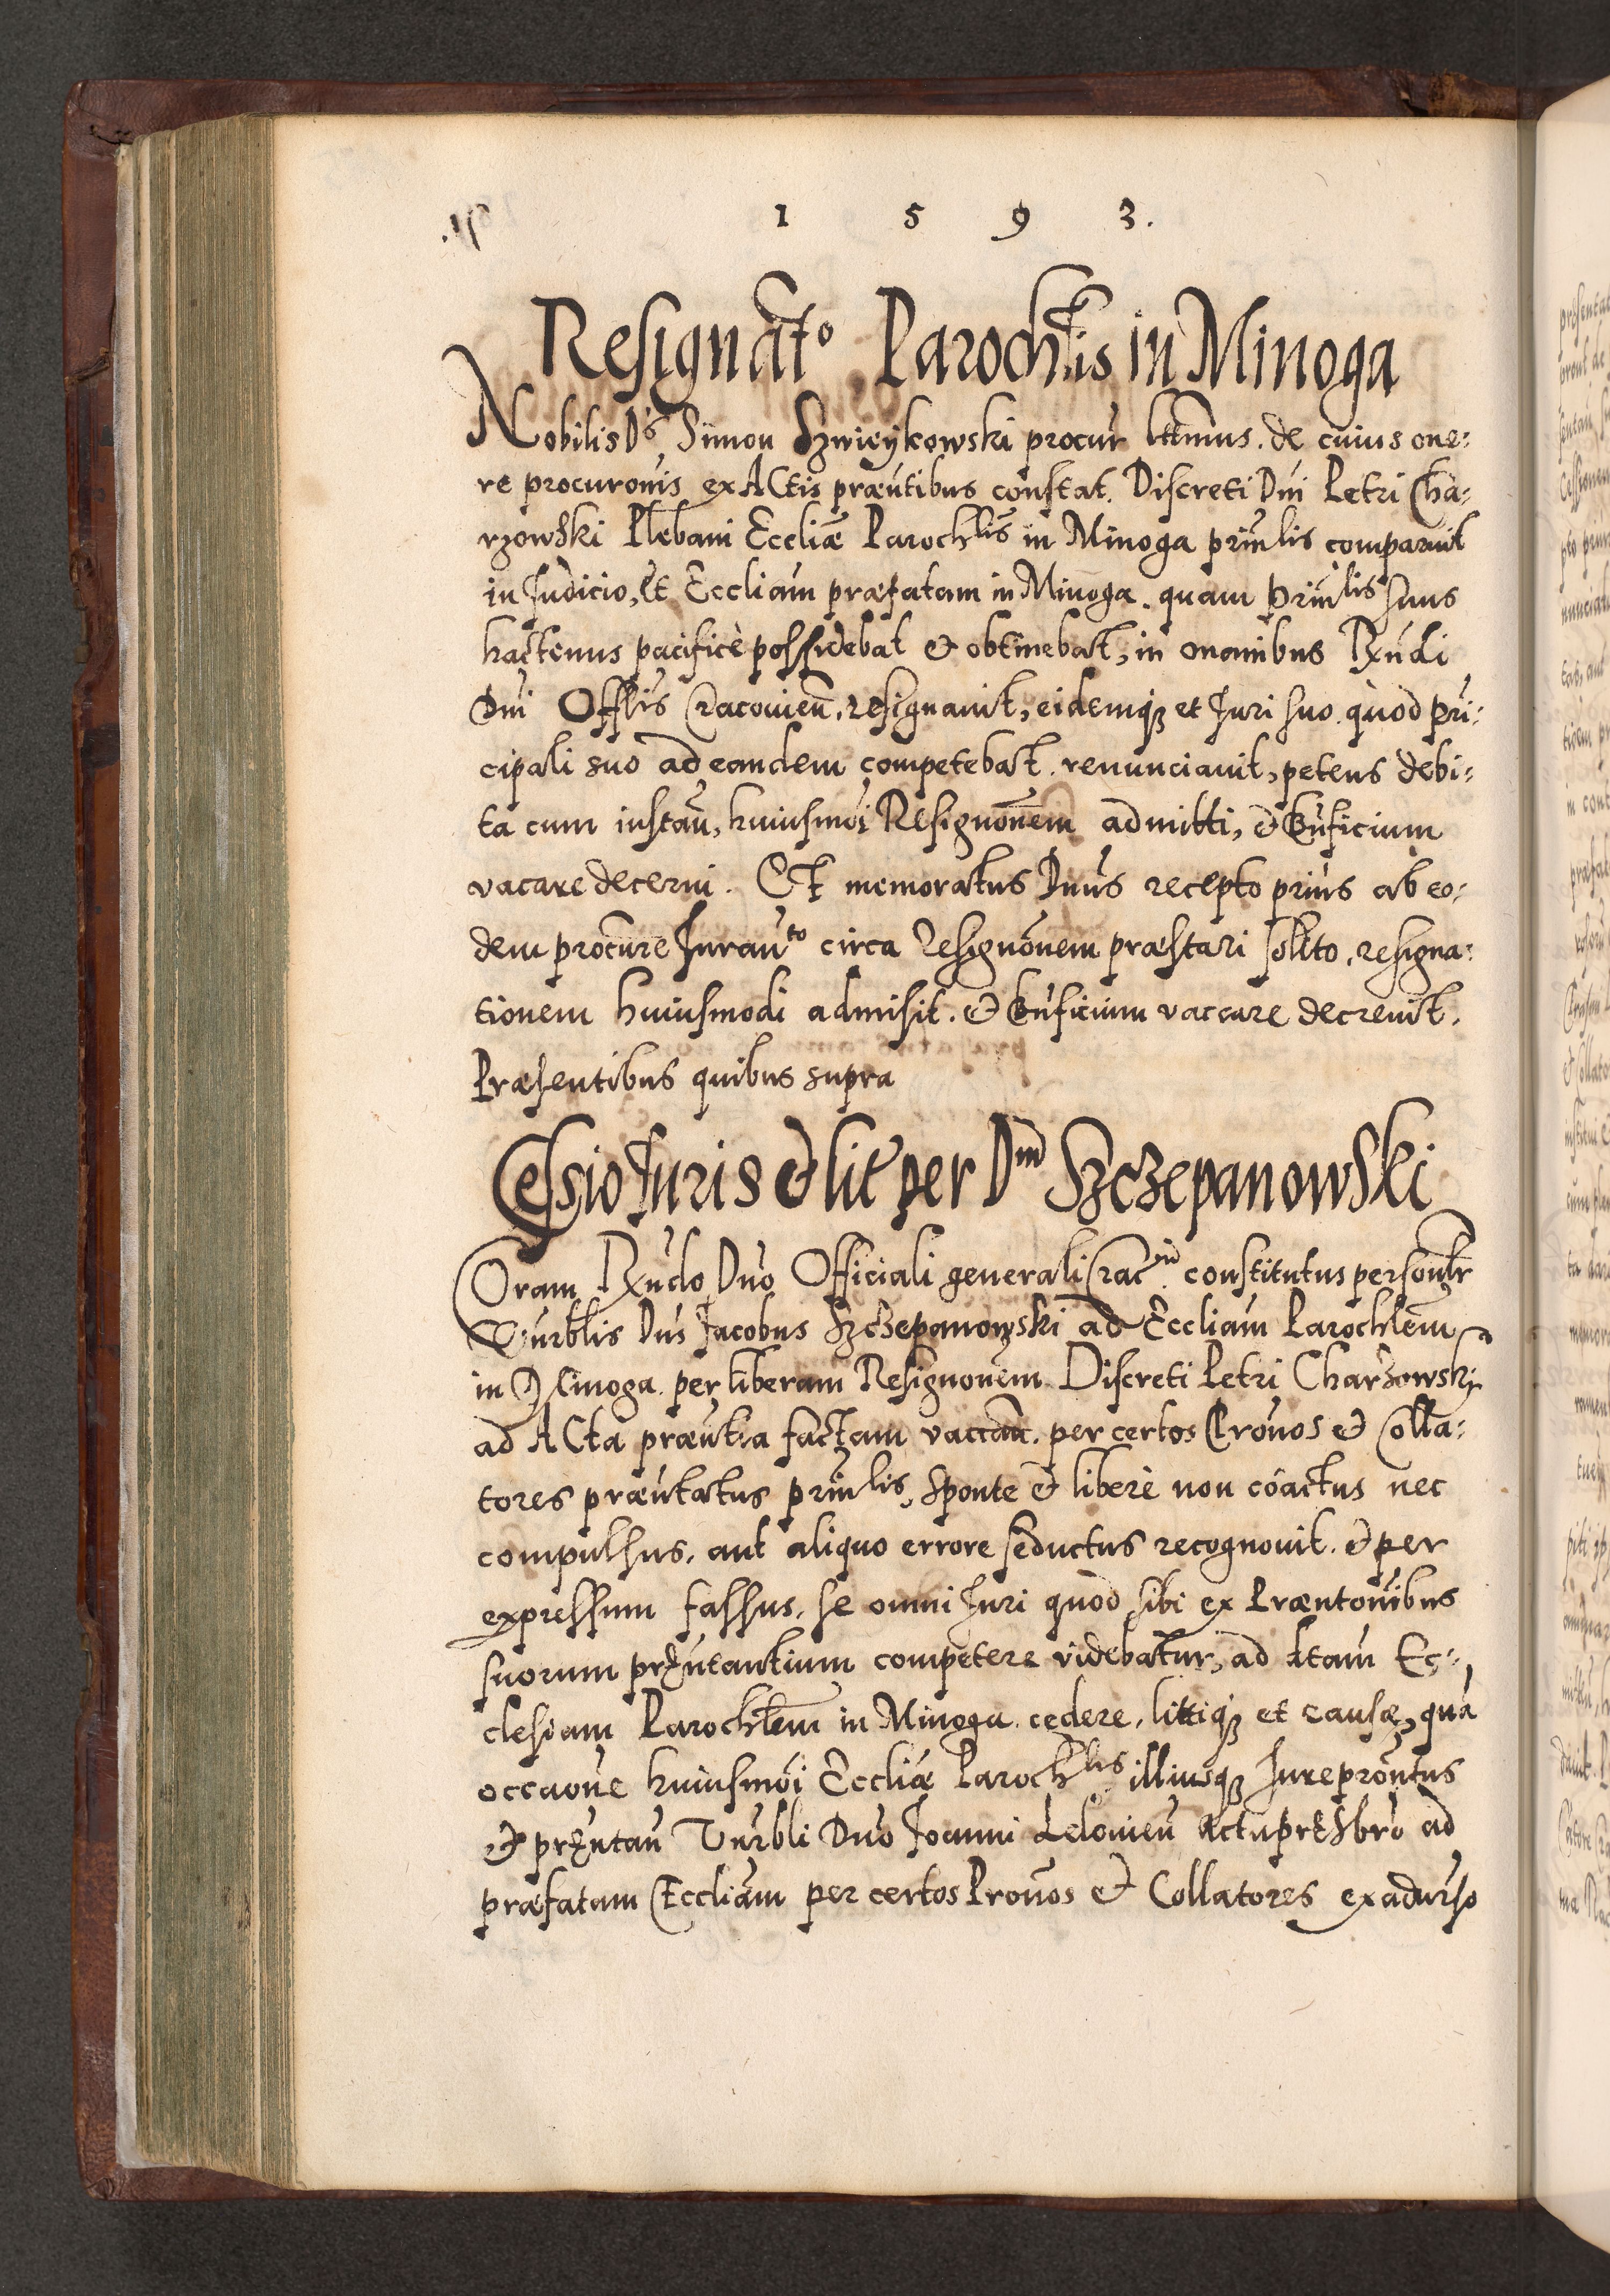 1 5 9 3.
Resignat͠o Parochlis in Minoga
Nobilis D͠s Simon Szwieykowski procur ltt͠imus. de cuius one:
re procuro͠nis ex ACtis præn͠tibus constat. Discreti Dn͠i Petri Cha:
rzowski Plebani Eccli͠æ Parochlis in Minoga prin͠lis comparuit
in Judicio, et Eccli͠am præfatam in Minoga. quam prin͠lis suus
hactenus pacificè possidebat & obtinebat, in manibus Rn͠di
Dn͠i Offl͠is Cracouien͠. resignauit, eidemqȝ et Juri suo quod pri͠:
cipali suo ad eandem competebat. renunciauit, petens debi:
ta cum instan͠, huiusmo͠i Resigno͠nem admitti, & Bn͠ficium
vacare decerni. Et memoratus Dn͠us recepto prius ab eo:
dem procure Juran͠to circa Resigno͠nem præstari solito, resigna:
tionem huiusmodi admisit. & Bn͠ficium vaccare decreuit.
Præsentibus quibus supra
Cessio Juris & lit͠ per Dm Szczepanowski
Coram Rn͠do Dn͠o Officiali generali Crac͠n. constitutus personl͠r
Vn͠rblis Dn͠s Jacobus Szczepanowski ad Eccli͠am Parochlem
in Minoga. per liberam Resigno͠nem Discreti Petri Charzowski
ad ACta præn͠tia factam vaccan͠. per certos P͠ronos & Colla:
tores præn͠tatus prin͠lis, sponte & liberè non coactus nec
compulsus, aut aliquo errore seductus recognouit. & per
expressum fassus, se omni Juri quod sibi ex Præn͠to͠nibus
suorum præn͠tantium competere videbatur, ad d͠tam Ec:
clesiam Parochlem in Minoga. cedere, littiqȝ et causæ, qua͠
occao͠ne huiusmo͠i Eccli͠æ Parochlis illiusqȝ Jurepron͠tus
& præn͠tan͠ Vn͠rbli Dn͠o Joanni Lelouien͠ Actu præsbr͠o ad
præfatam Eccli͠am per certos Pron͠os & Collatores ex adu͠rso